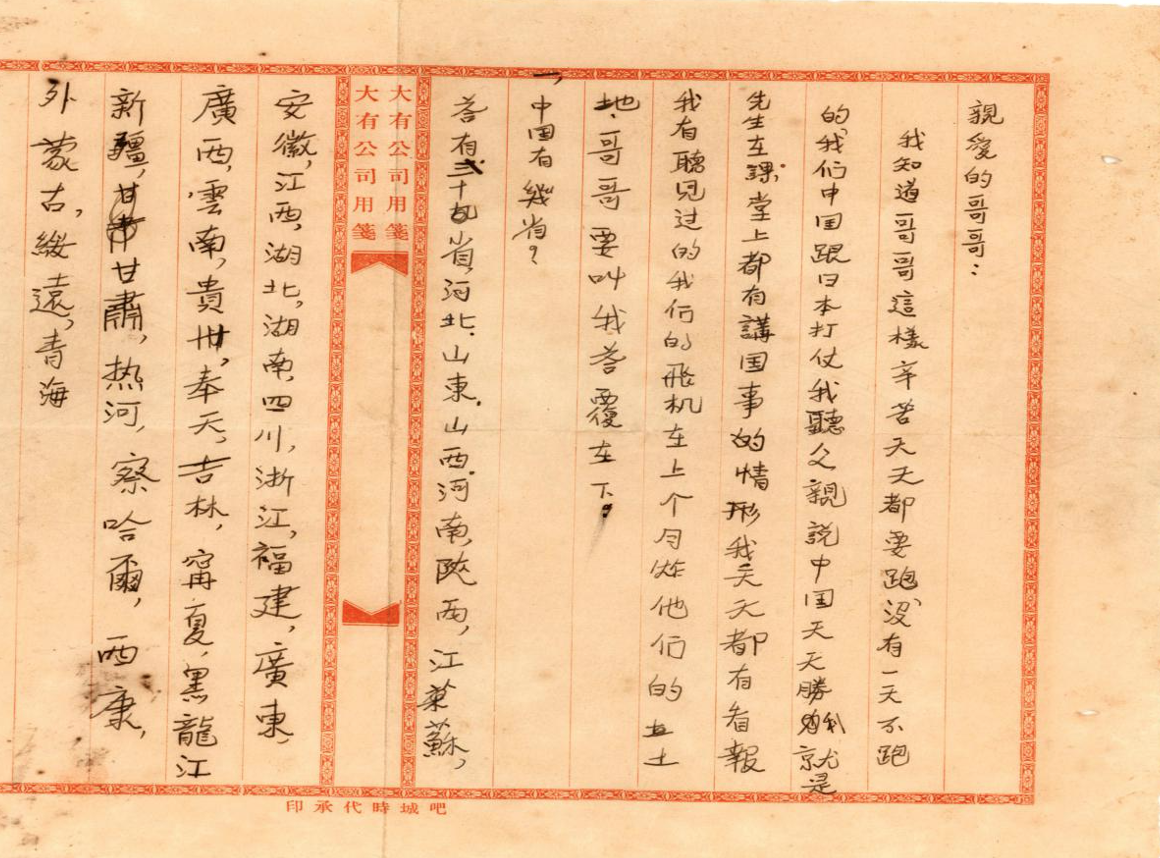 親愛的哥哥：
我知道哥哥這樣辛苦天天都要跑沒有一天不跑
的我们中国跟日本打仗我聽父親説中国天天勝利就是
先生在課堂上都有講国事的情形我天天都有看報
我有聽見过的我们的飛机在上个月炸他们的土
地．哥哥要叫我荅覆在下：
一，中国有幾省？
荅有二十九省，河北．山東．山西．河南，陜西，江蘇，
大有公司用箋
大有公司用箋
安徽，江西，湖北，湖南，四川，浙江，福建，廣東，
廣西，雲南，貴州，奉天，吉林，甯夏，黑龍江
新疆，甘肅，热河，察哈爾，西康，
外蒙古，綏遠，青海
吧城時代承印